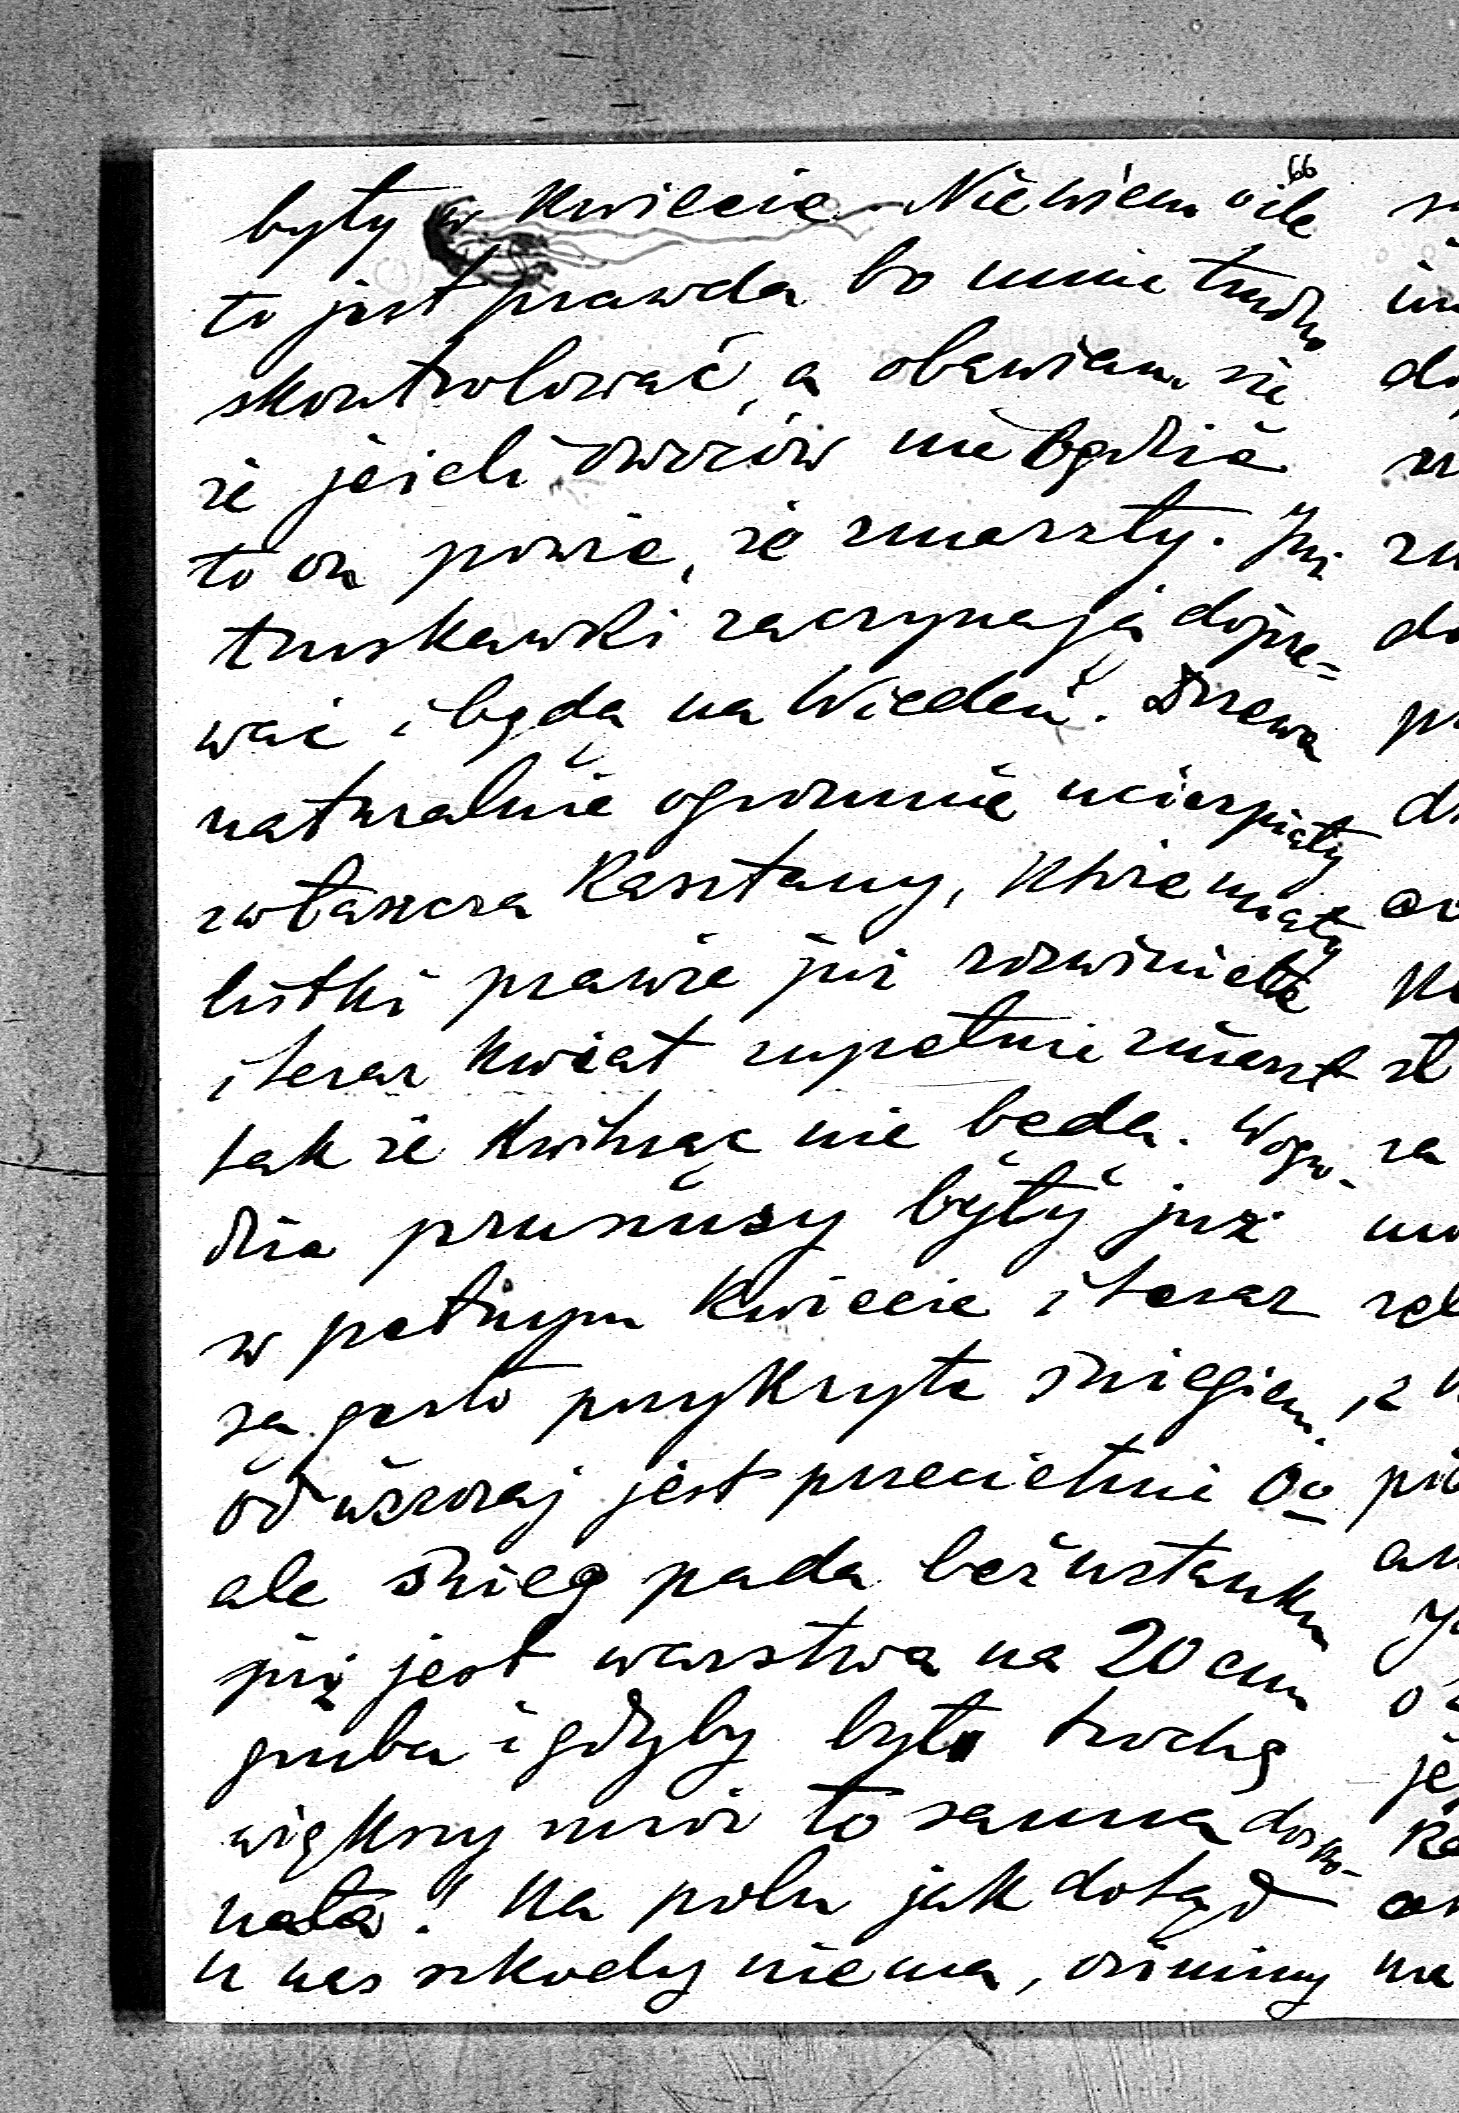 66
były w kwiecie. Niewiem o ile
to jest prawda bo mnie trudno
skontrolować, a obawiam się
że jeżeli owoców nie będzie
to on powie, że zmarzły. Już
truskawki zaczynają dojrze=
wać i będą na Wiedeń. Drzewa
naturalnie ogromnie ucierpiały
zwłaszcza Kasztany, które miały
listki prawie już rozwinięte
i teraz kwiat zupełnie zmarzł
tak że kwitnąć nie będą. W ogro-
dzie prunusy były już
w pełnym kwiecie i teraz
są gęsto przykryte śniegiem.
Od wczoraj jest przeciętnie 0°
ale śnieg pada bezustanku
już jest warstwa na 20 cm
gruba i gdyby było trochę
większy mróz to sanna dosko-
nała! Na polu jak dotąd
u nas szkody niema, oziminy